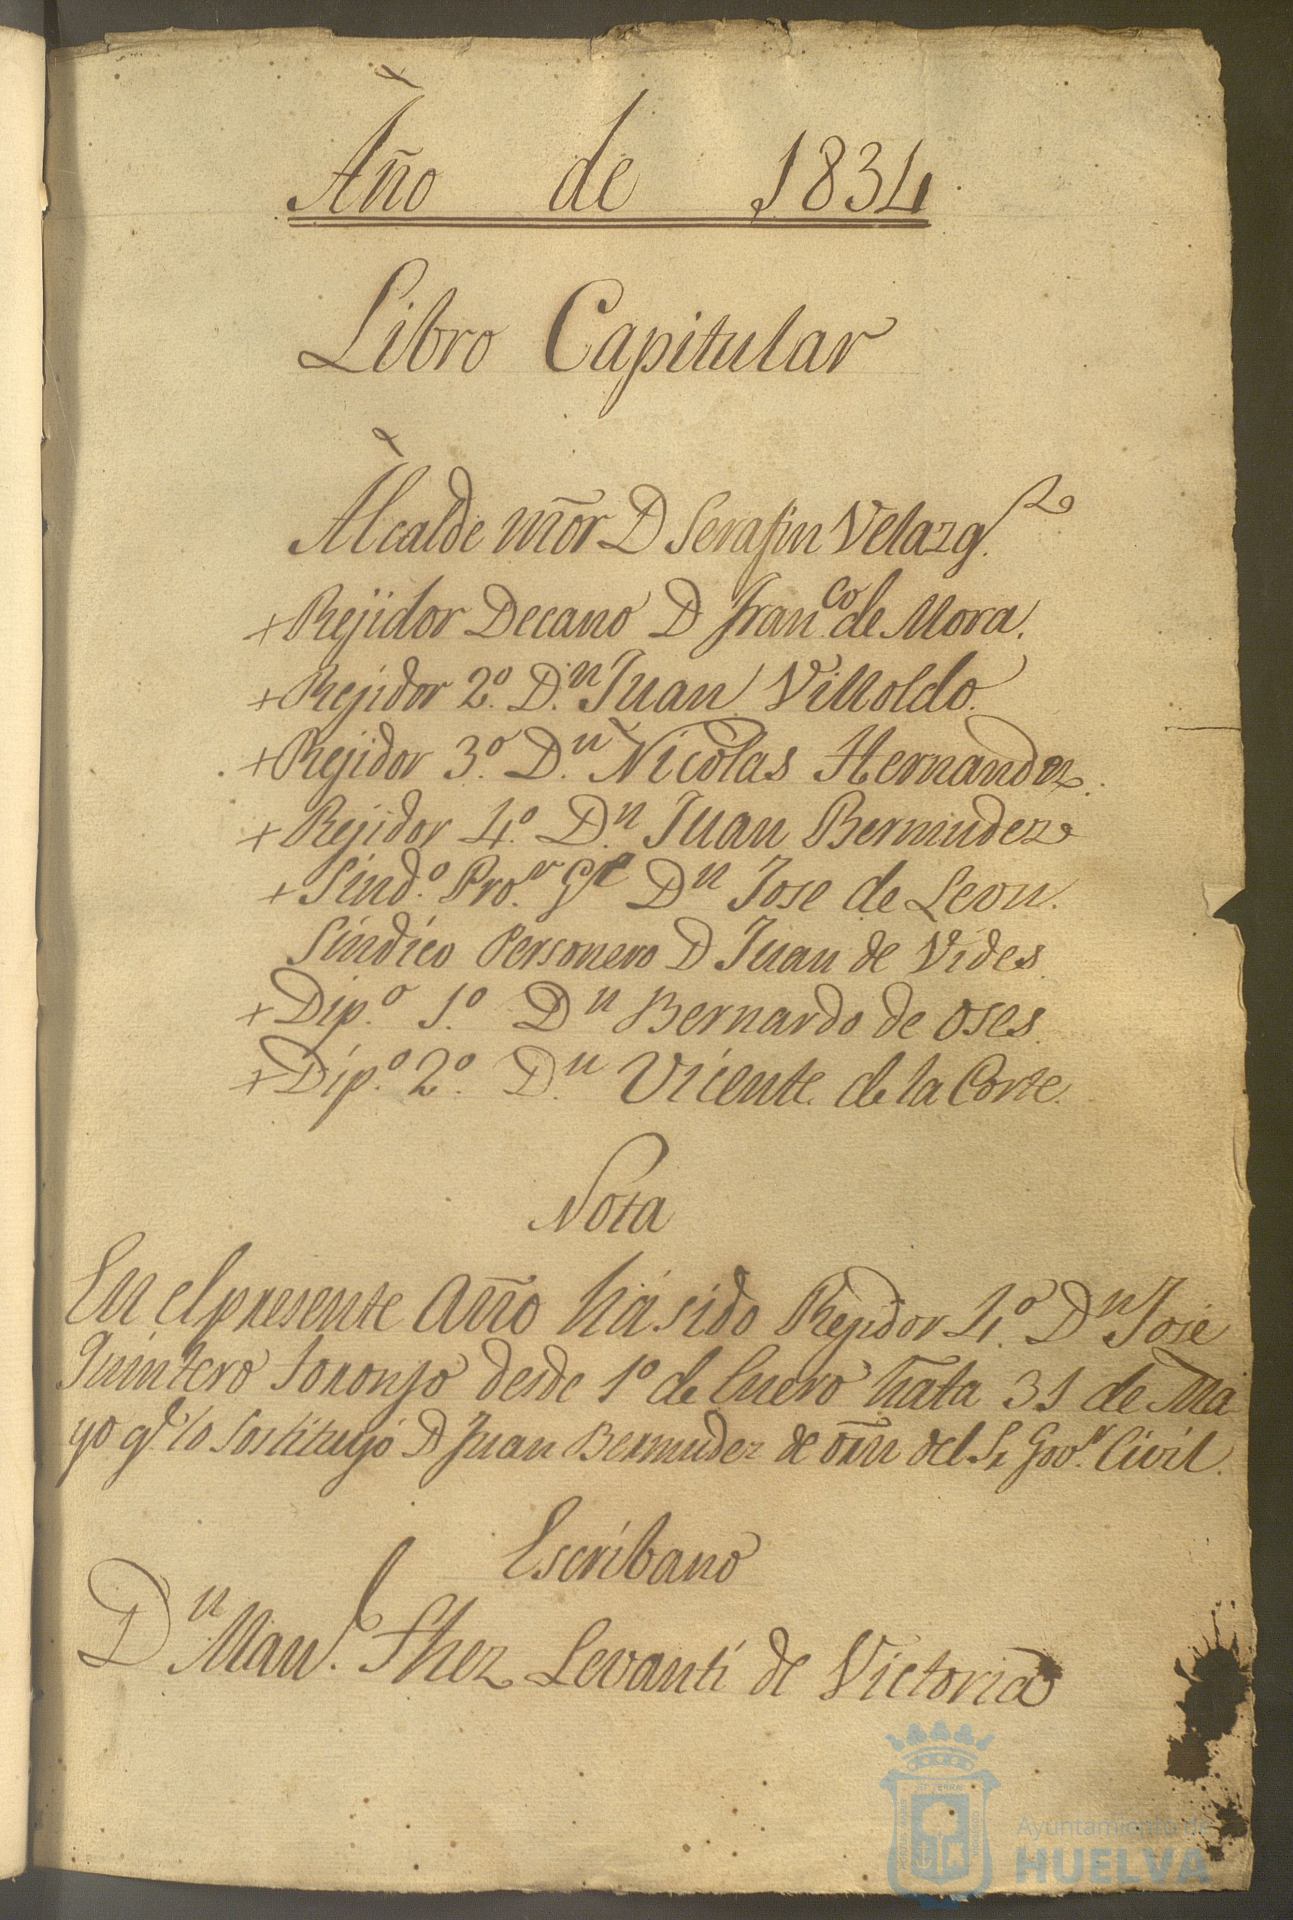 Año de 1834
Libro Capitular
Alcalde mõr D Serafin Velazqz
+ Rejidor Decano D Franco de Mora.
+ Rejidor 2º. Dn. Juan Villoldo.
+ Rejidor 3º. Dn. Nicolas Hernandez.
+ Rejidor 4º. Dn Juan Bermudez
+ Sindº. Pror. Gl Dn Jose de Leon.
Sindico Personero D Juan de Vides
+ Dipº. 1º. Dn Bernardo de Oses.
+ Dipº. 2º. Dn. Vicente de la Corte.
Nota
En el presente Año há sido Rejidor 4º. Dn José
Quintero Toronjo desde 1º de Enero hata 31 de Ma
yo qe lo sostituyó D Juan Bermudez de orñ del Sr Govr. Civil.
Escribano
Dn Manl. Shez Levanti de Victoria
Ayuntamiento de
HUELVA